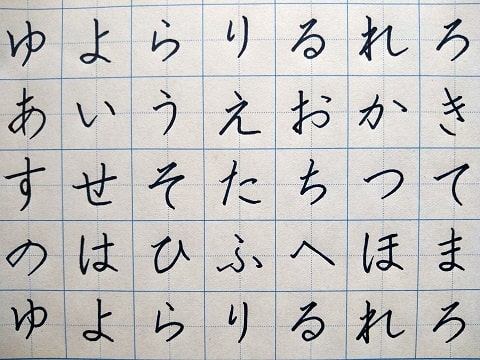 ゆよらりるれろ
あいうえおかき
すせそたちつて
のはひふへほま
ゆよらりるれろ